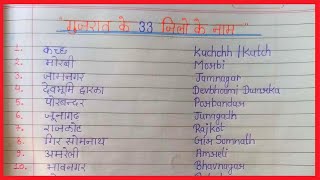 "गुजरात के 33 जिलों के नाम"
1. कच्छ Kuchchh / Katch
2. मोरबी Morbi
3. जामनगर Jamnagar
4. देवभूमि द्वारका Devbhoomi Dwarka
5. पोरबन्दर Porbandar
6. जूनागढ़ Junagadh
7. राजकोट Rajkot
8. गिर सोमनाथ Gir Somnath
9. अमरेली Amreli
10. भावनगर Bhavnagar